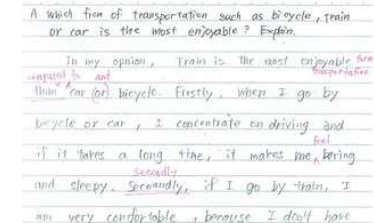 A which from of transportation such as bicycle, train
or car is the most enjoyable? Explain.
In my opnion, Train is the most enjoyable form
transportation
compared to and
than car (or) bicycle. Firstly, when I go by
bicycle or car, I concentrate on driving and
feel
if it takes a long time, it makes me boring
secondly
and sleepy. Specondly, if I go by train, I
am very comfortable, because I don't have